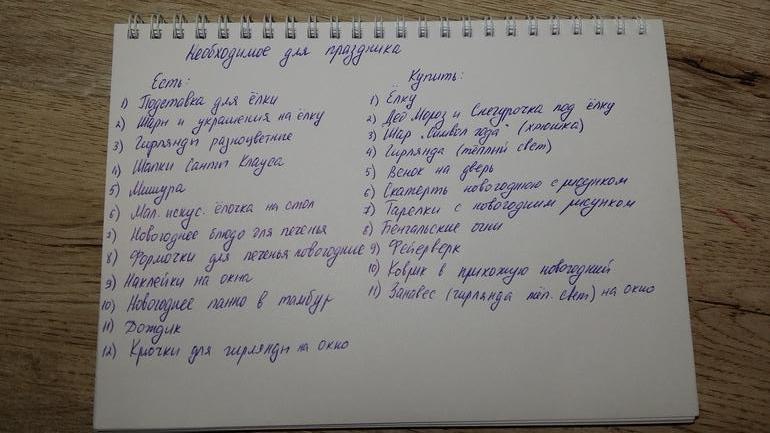 Необходимое для праздника
Есть:
1) Подставка для ёлки
2) Шары и украшения на ёлку
3) Гирлянды разноцветные
4) Шапки Санты Клауса
5) Мишура
6) Мал. искус. ёлочка на стол
7) Новогоднее блюдо для печенья
8) Формочки для печенья новогодние
9) Наклейки на окна
10) Новогоднее панно в тамбур
11) Дождик
12) Крючки для гирлянды на окно
Купить:
1) Ёлку
2) Дед Мороз и Снегурочка под ёлку
3) Шар "символ года" (хрюшка)
4) Гирлянда (тёплый свет)
5) Венок на дверь
6) Скатерть новогоднюю с рисунком
7) Тарелки с новогодним рисунком
8) Бенгальские огни
9) Фейерверк
10) Коврик в прихожую новогодний
11) Занавес (гирлянда тёп. свет) на окно